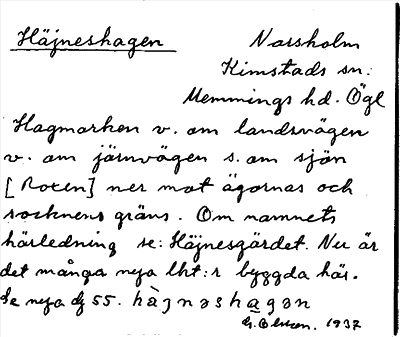 Häjneshagen Norsholm
Kimstads sn:
Memmings hd. Ögl
Hagmarken v. om landsvägen
v. om järnvägen s. om sjön
[Roxen] ner mot ägornas och
socknens gräns. Om namnets
härledning se: Häjnesgärdet. Nu är
det många nya lht:r byggda här.
Se nya dj 55. hàjnəshagən
1937